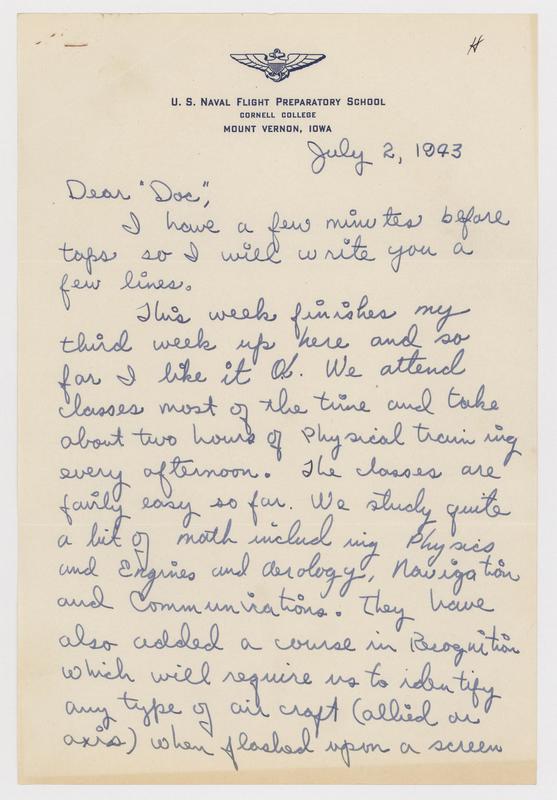 H
U. S. NAVAL FLIGHT PREPARATORY SCHOOL
CORNELL COLLEGE
MOUNT VERNON, IOWA
July 2, 1943
Dear "Doc",
I have a few minutes before
taps so I will write you a
few lines.
This week finishes my
third week up here and so
far I like it Ok. We attend
classes most of the time and take
about two hours of Physical training
every afternoon. The classes are
fairly easy so far. We study quite
a bit of math including Physics
and Engines and Aerology, Navigation
and Communications. They have
also added a course in Recognition
which will require us to identify
any type of air craft (allied or
axis) when flashed upon a screen